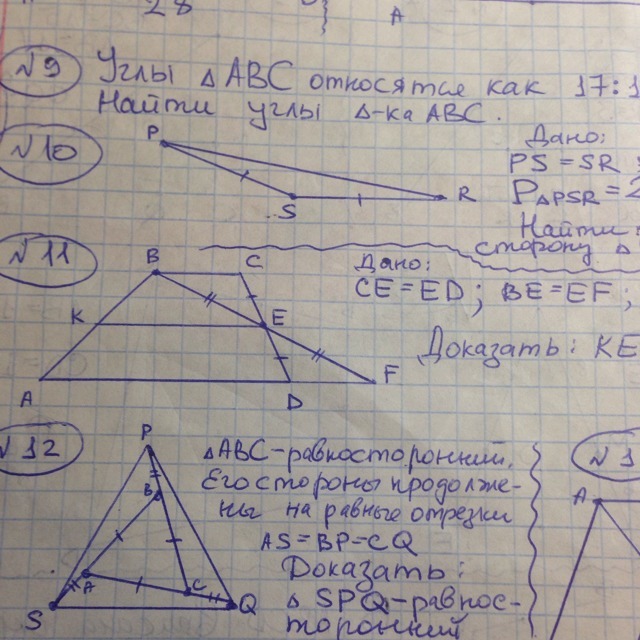 28
A
N9 Углы △ABC относятся как 17:1
Найти углы △-ка ABC.
N10
P
S
R
Дано:
PS = SR
P△PSR = 2
Найти
сторону △
N11
B
C
K
E
A
D
F
Дано:
CE = ED; BE = EF;
Доказать: KE
N12
P
B
A
C
S
Q
△ABC-равносторонний.
Его стороны продолже-
ны на равные отрезки
AS = BP = CQ
Доказать:
△ SPQ-равнос-
торонний
N1
A